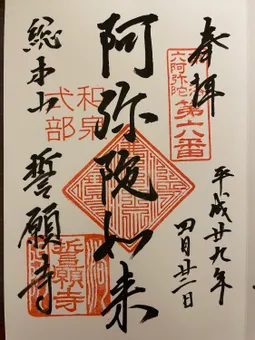 奉拝
六阿弥陀
第六番
平成廿九年
四月廿二日
阿弥陀如来
和泉
式部
総本山
誓願寺
誓願寺